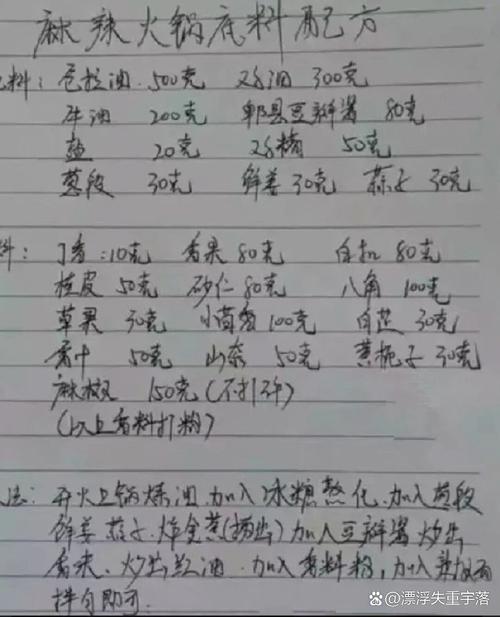 麻辣火锅底料配方
料：色拉油 500克 鸡油 300克
牛油 200克 郫县豆瓣酱 80克
盐 20克 鸡精 50克
葱段 30克 鲜姜 30克 蒜子 30克
料：丁香：10克 香果 80克 白扣 80克
桂皮 50克 砂仁 80克 八角 100克
草果 30克 小茴香 100克 白芷 30克
香叶 50克 山奈 50克 黄栀子 30克
麻椒 150克（不打碎）
（以上香料打粉）
法：开火上锅炼油.加入冰糖熬化.加入葱段
鲜姜 蒜子.炸金黄（捞出）加入豆瓣酱 炒出
香味、炒出红油.加入香料粉，加入
拌匀即可.
@漂浮失重宇落